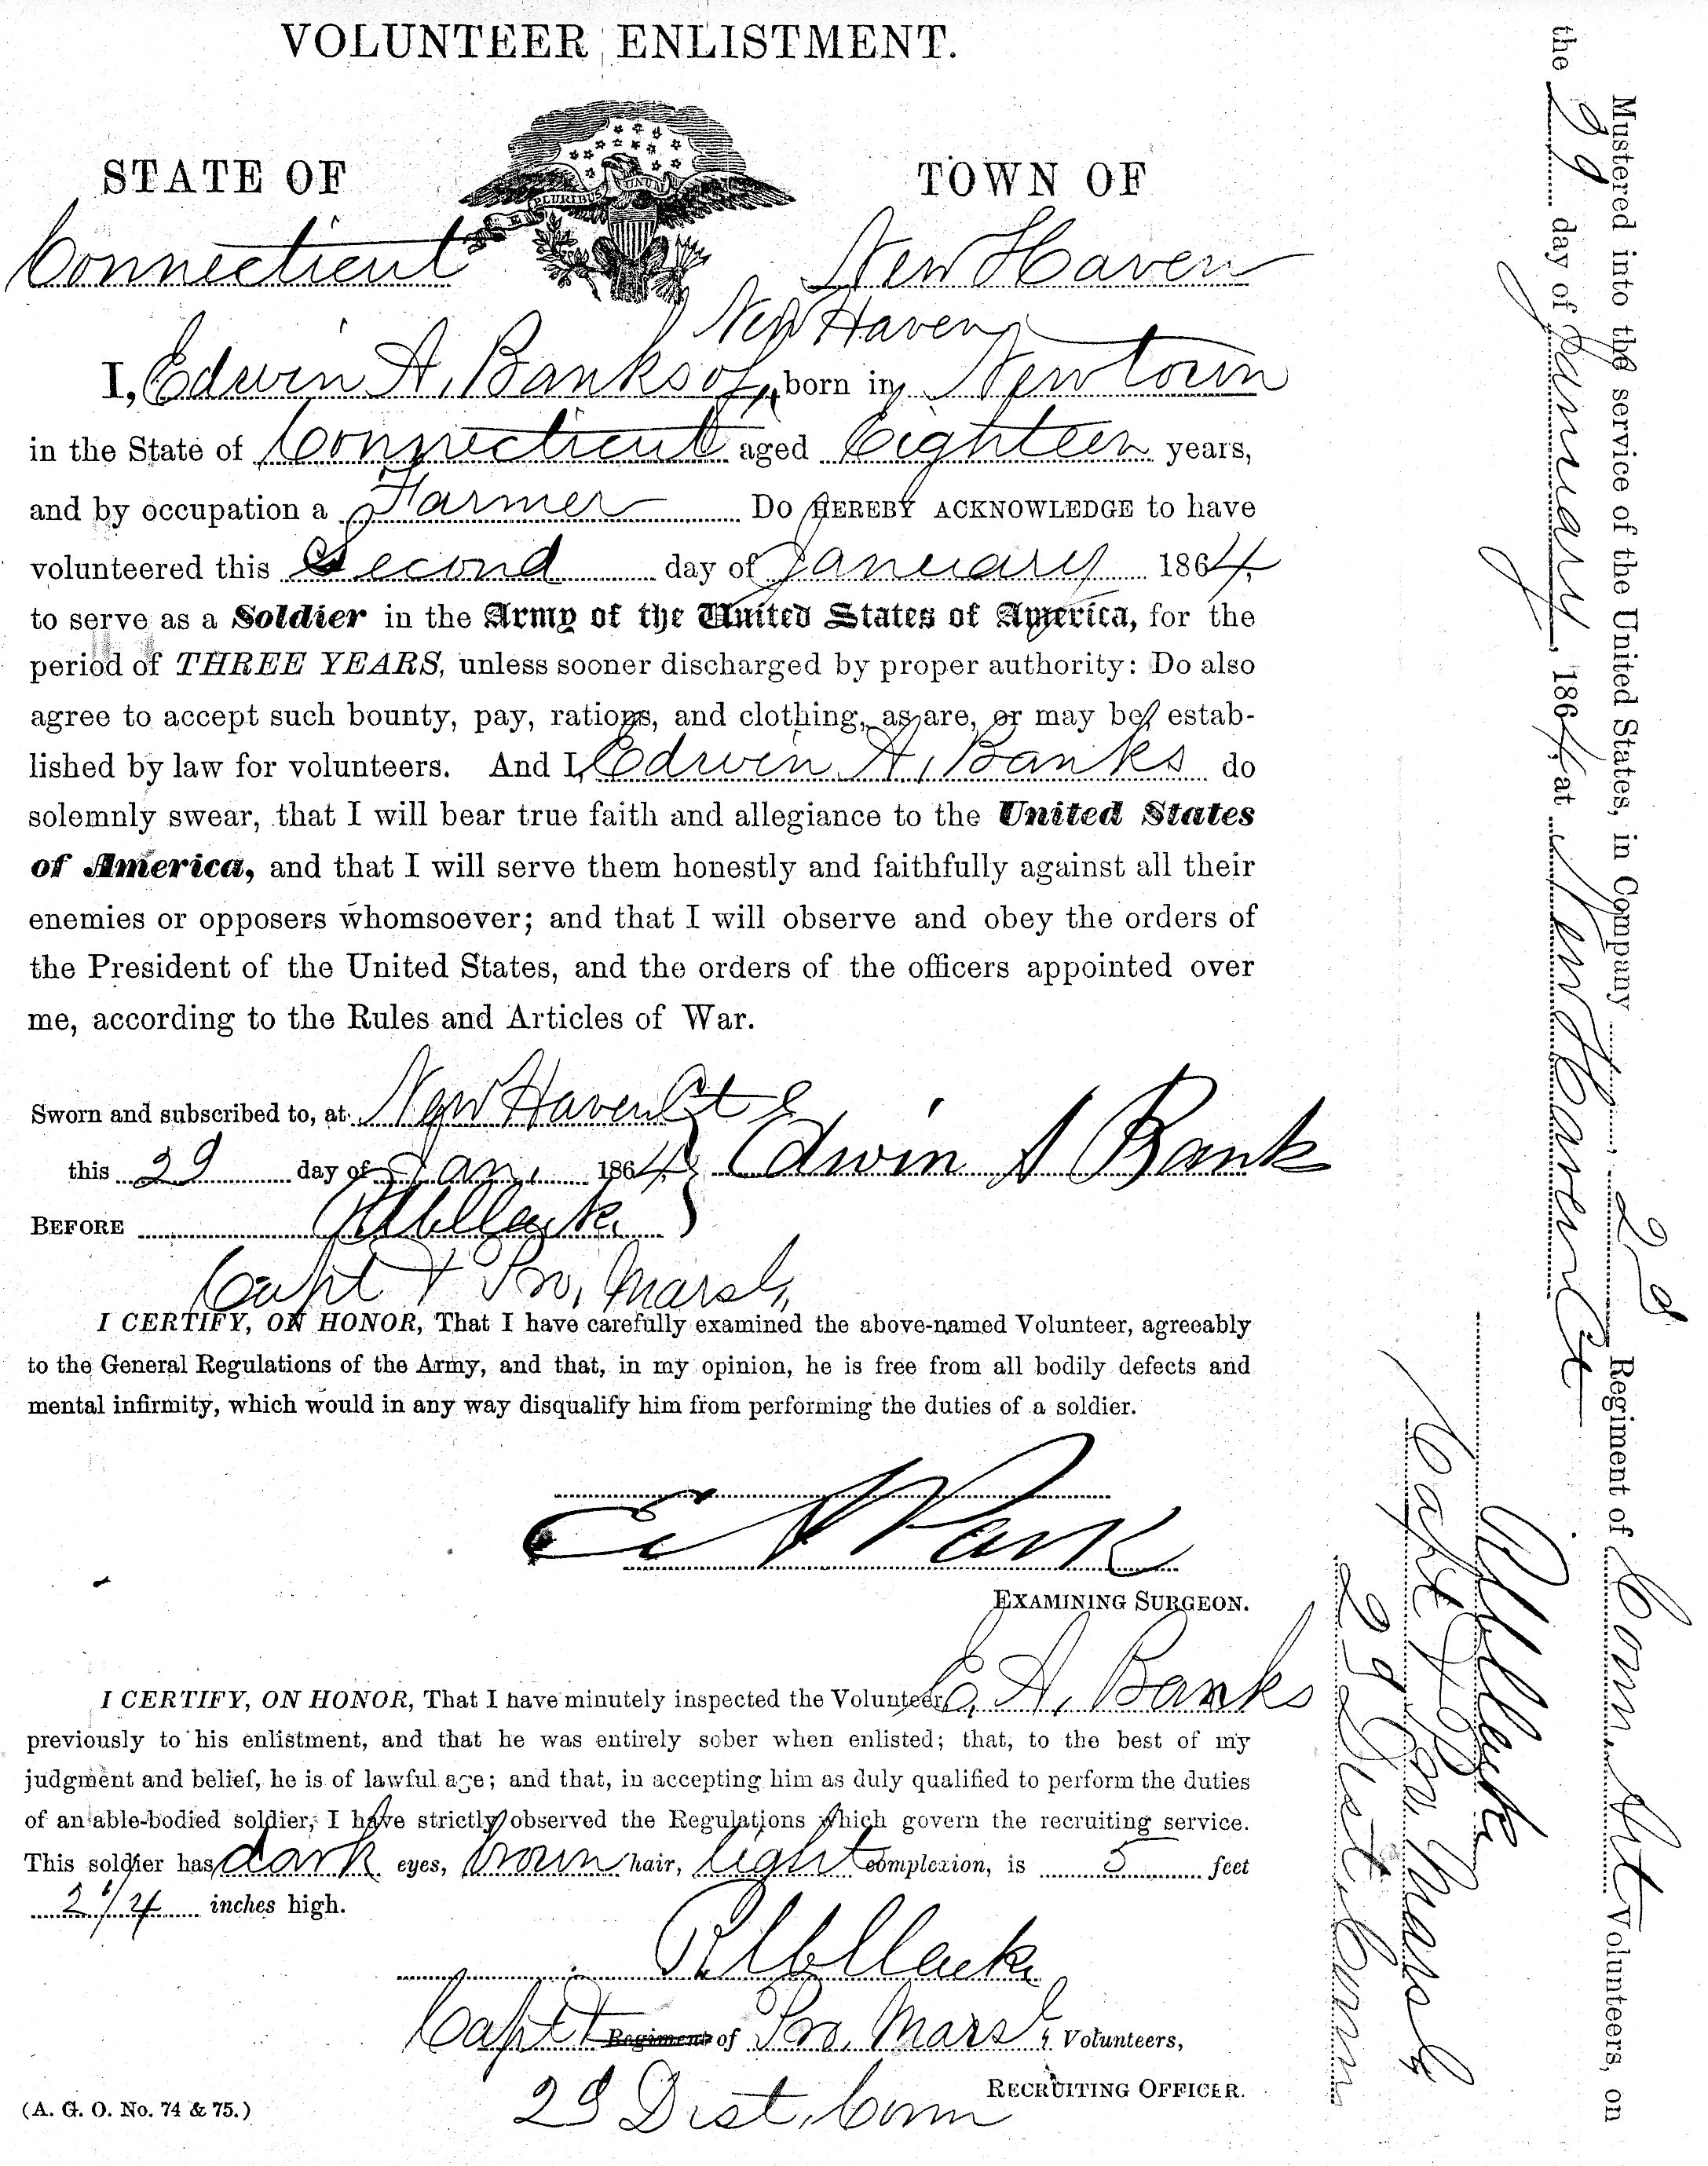 VOLUNTEER ENLISTMENT.
STATE OF
TOWN OF
E PLURIBUS UNUM
Connecticut
New Haven
New Haven
I, Edwin A. Banks of, born in Newtown
in the State of Connecticut aged Eighteen years,
and by occupation a Farmer Do HEREBY ACKNOWLEDGE to have
volunteered this Second day of January 1864,
to serve as a Soldier in the Army of the United States of America, for the
period of THREE YEARS, unless sooner discharged by proper authority: Do also
agree to accept such bounty, pay, rations, and clothing, as are, or may be, estab-
lished by law for volunteers. And I, Edwin A. Banks do
solemnly swear, that I will bear true faith and allegiance to the United States
of America, and that I will serve them honestly and faithfully against all their
enemies or opposers whomsoever; and that I will observe and obey the orders of
the President of the United States, and the orders of the officers appointed over
me, according to the Rules and Articles of War.
Sworn and subscribed to, at New Haven Ct
this 29 day of Jan. 1864 Edwin A Bank
BEFORE
Capt & Pro. Marsh,
I CERTIFY, ON HONOR, That I have carefully examined the above-named Volunteer, agreeably
to the General Regulations of the Army, and that, in my opinion, he is free from all bodily defects and
mental infirmity, which would in any way disqualify him from performing the duties of a soldier.
E A Park
EXAMINING SURGEON.
I CERTIFY, ON HONOR, That I have minutely inspected the Volunteer, E. A. Banks
previously to his enlistment, and that he was entirely sober when enlisted; that, to the best of my
judgment and belief, he is of lawful age; and that, in accepting him as duly qualified to perform the duties
of an able-bodied soldier, I have strictly observed the Regulations which govern the recruiting service.
This soldier has dark eyes, brown hair, light complexion, is 5 feet
2 1/4 inches high.
Capt & Regiment of Pro. Marsh, Volunteers,
2d Dist. Conn
RECRUITING OFFICER.
(A. G. O. No. 74 & 75.)
Mustered into the service of the United States, in Company , 2d Regiment of Conn. Art Volunteers, on
the 29 day of January, 1864, at New Haven Ct
Capt & Pro. Marsh
2d Dist. Conn